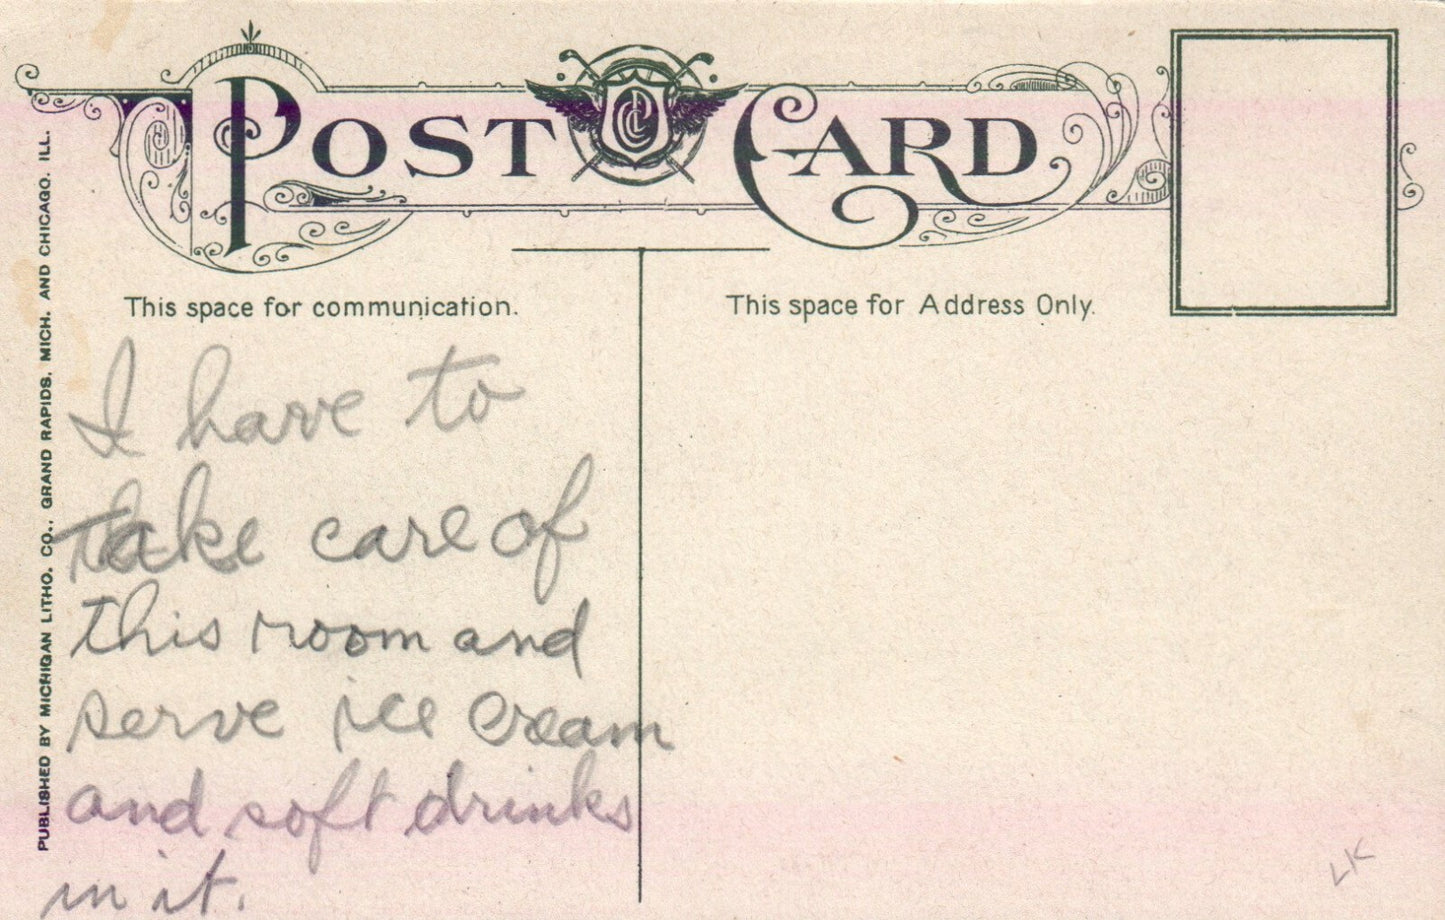 POST CARD
This space for communication.
This space for Address Only.
I have to
take care of
this room and
serve ice cream
and soft drinks
in it.
PUBLISHED BY MICHIGAN LITHO. CO., GRAND RAPIDS, MICH. AND CHICAGO, ILL.
LK